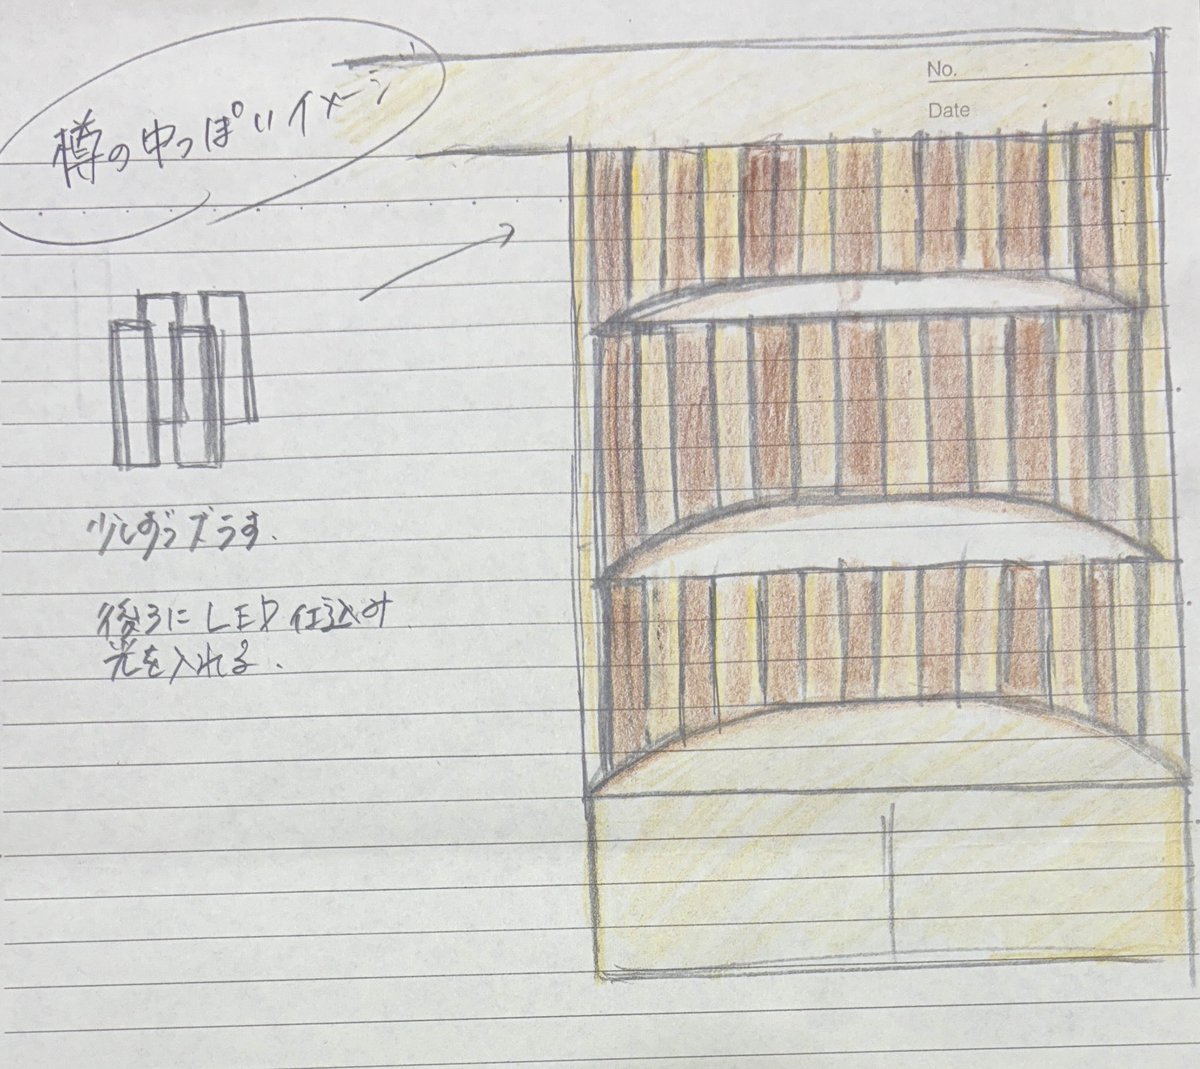 樽の中っぽいイメージ
No.
Date
少しずつズラす.
後ろにLED仕込み
光を入れる.